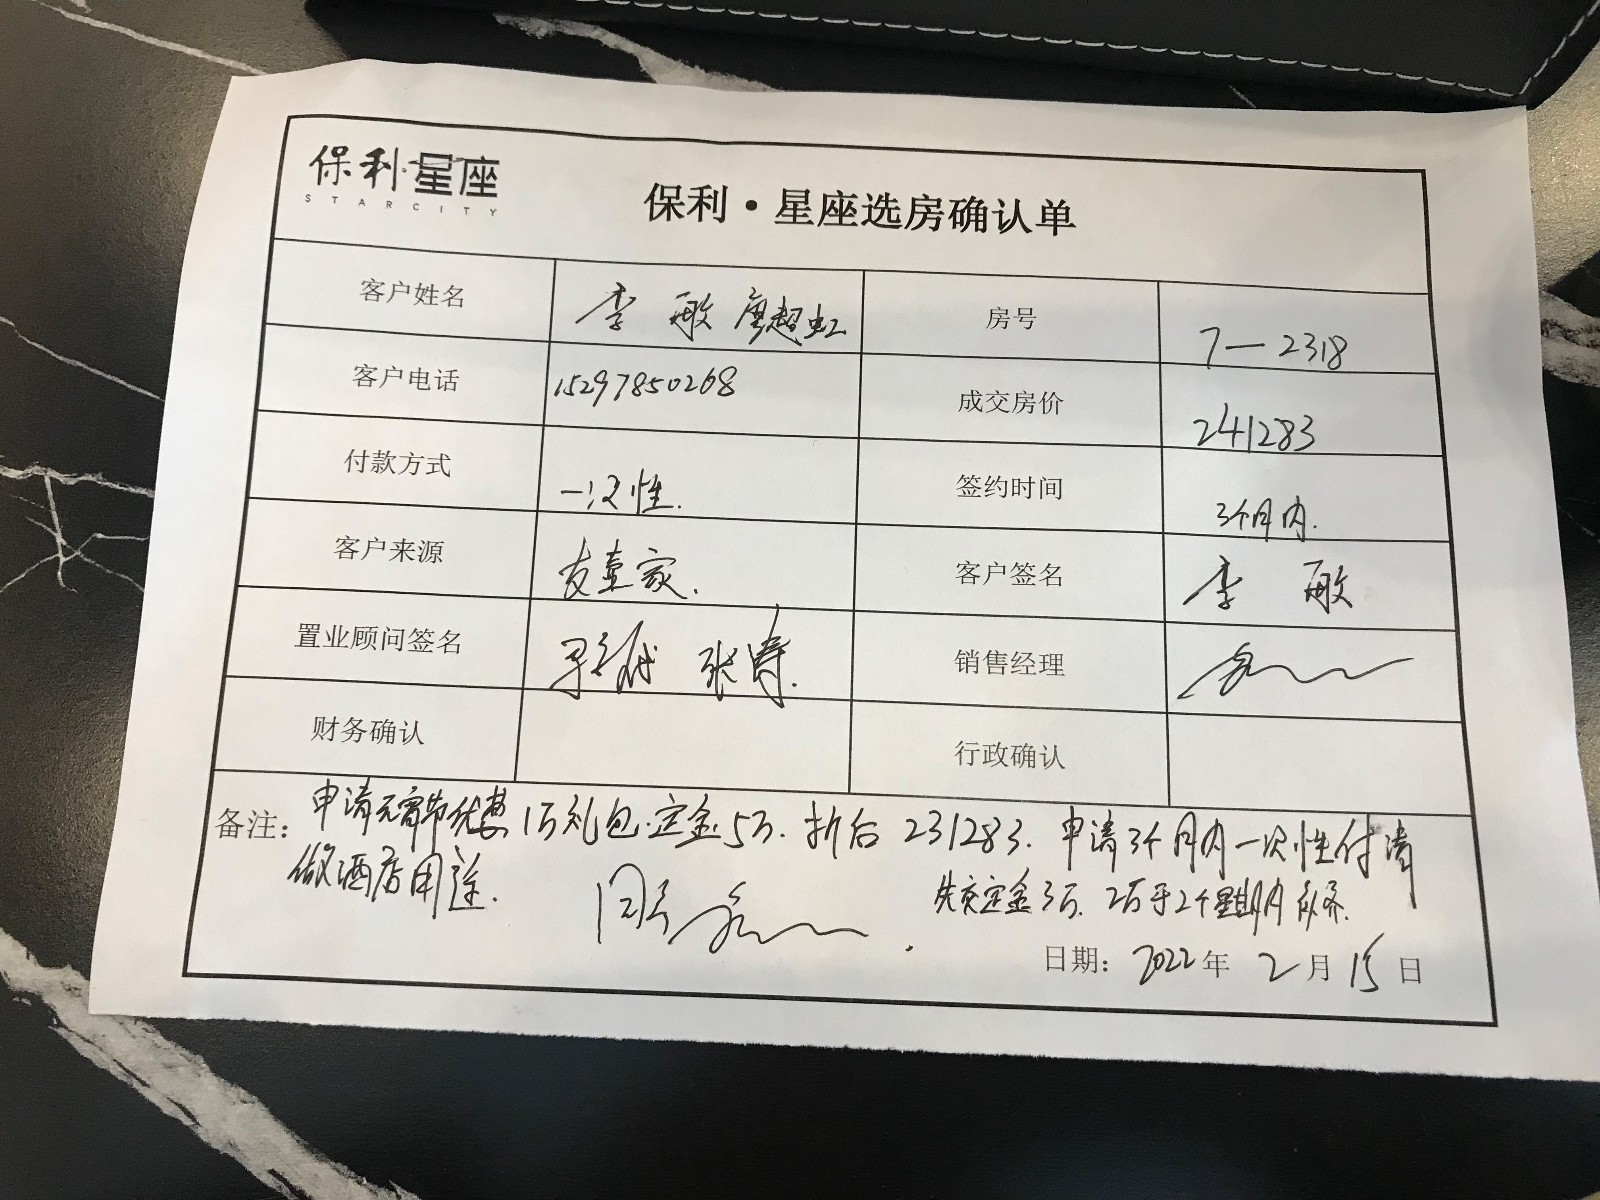 保利·星座
STARCITY
保利·星座选房确认单
客户姓名 李敏 廖超虹 房号 7—2318
客户电话 15297850268 成交房价 241283
付款方式 一次性. 签约时间 3个月内.
客户来源 友卖家. 客户签名 李敏
置业顾问签名 张涛. 销售经理
财务确认 行政确认
备注: 申请元宵节优惠1万礼包.定金5万.折后231283.申请3个月内一次性付清
做酒店用途.
先交定金3万.2万于2个星期内补齐.
同意
日期: 2022年2月15日